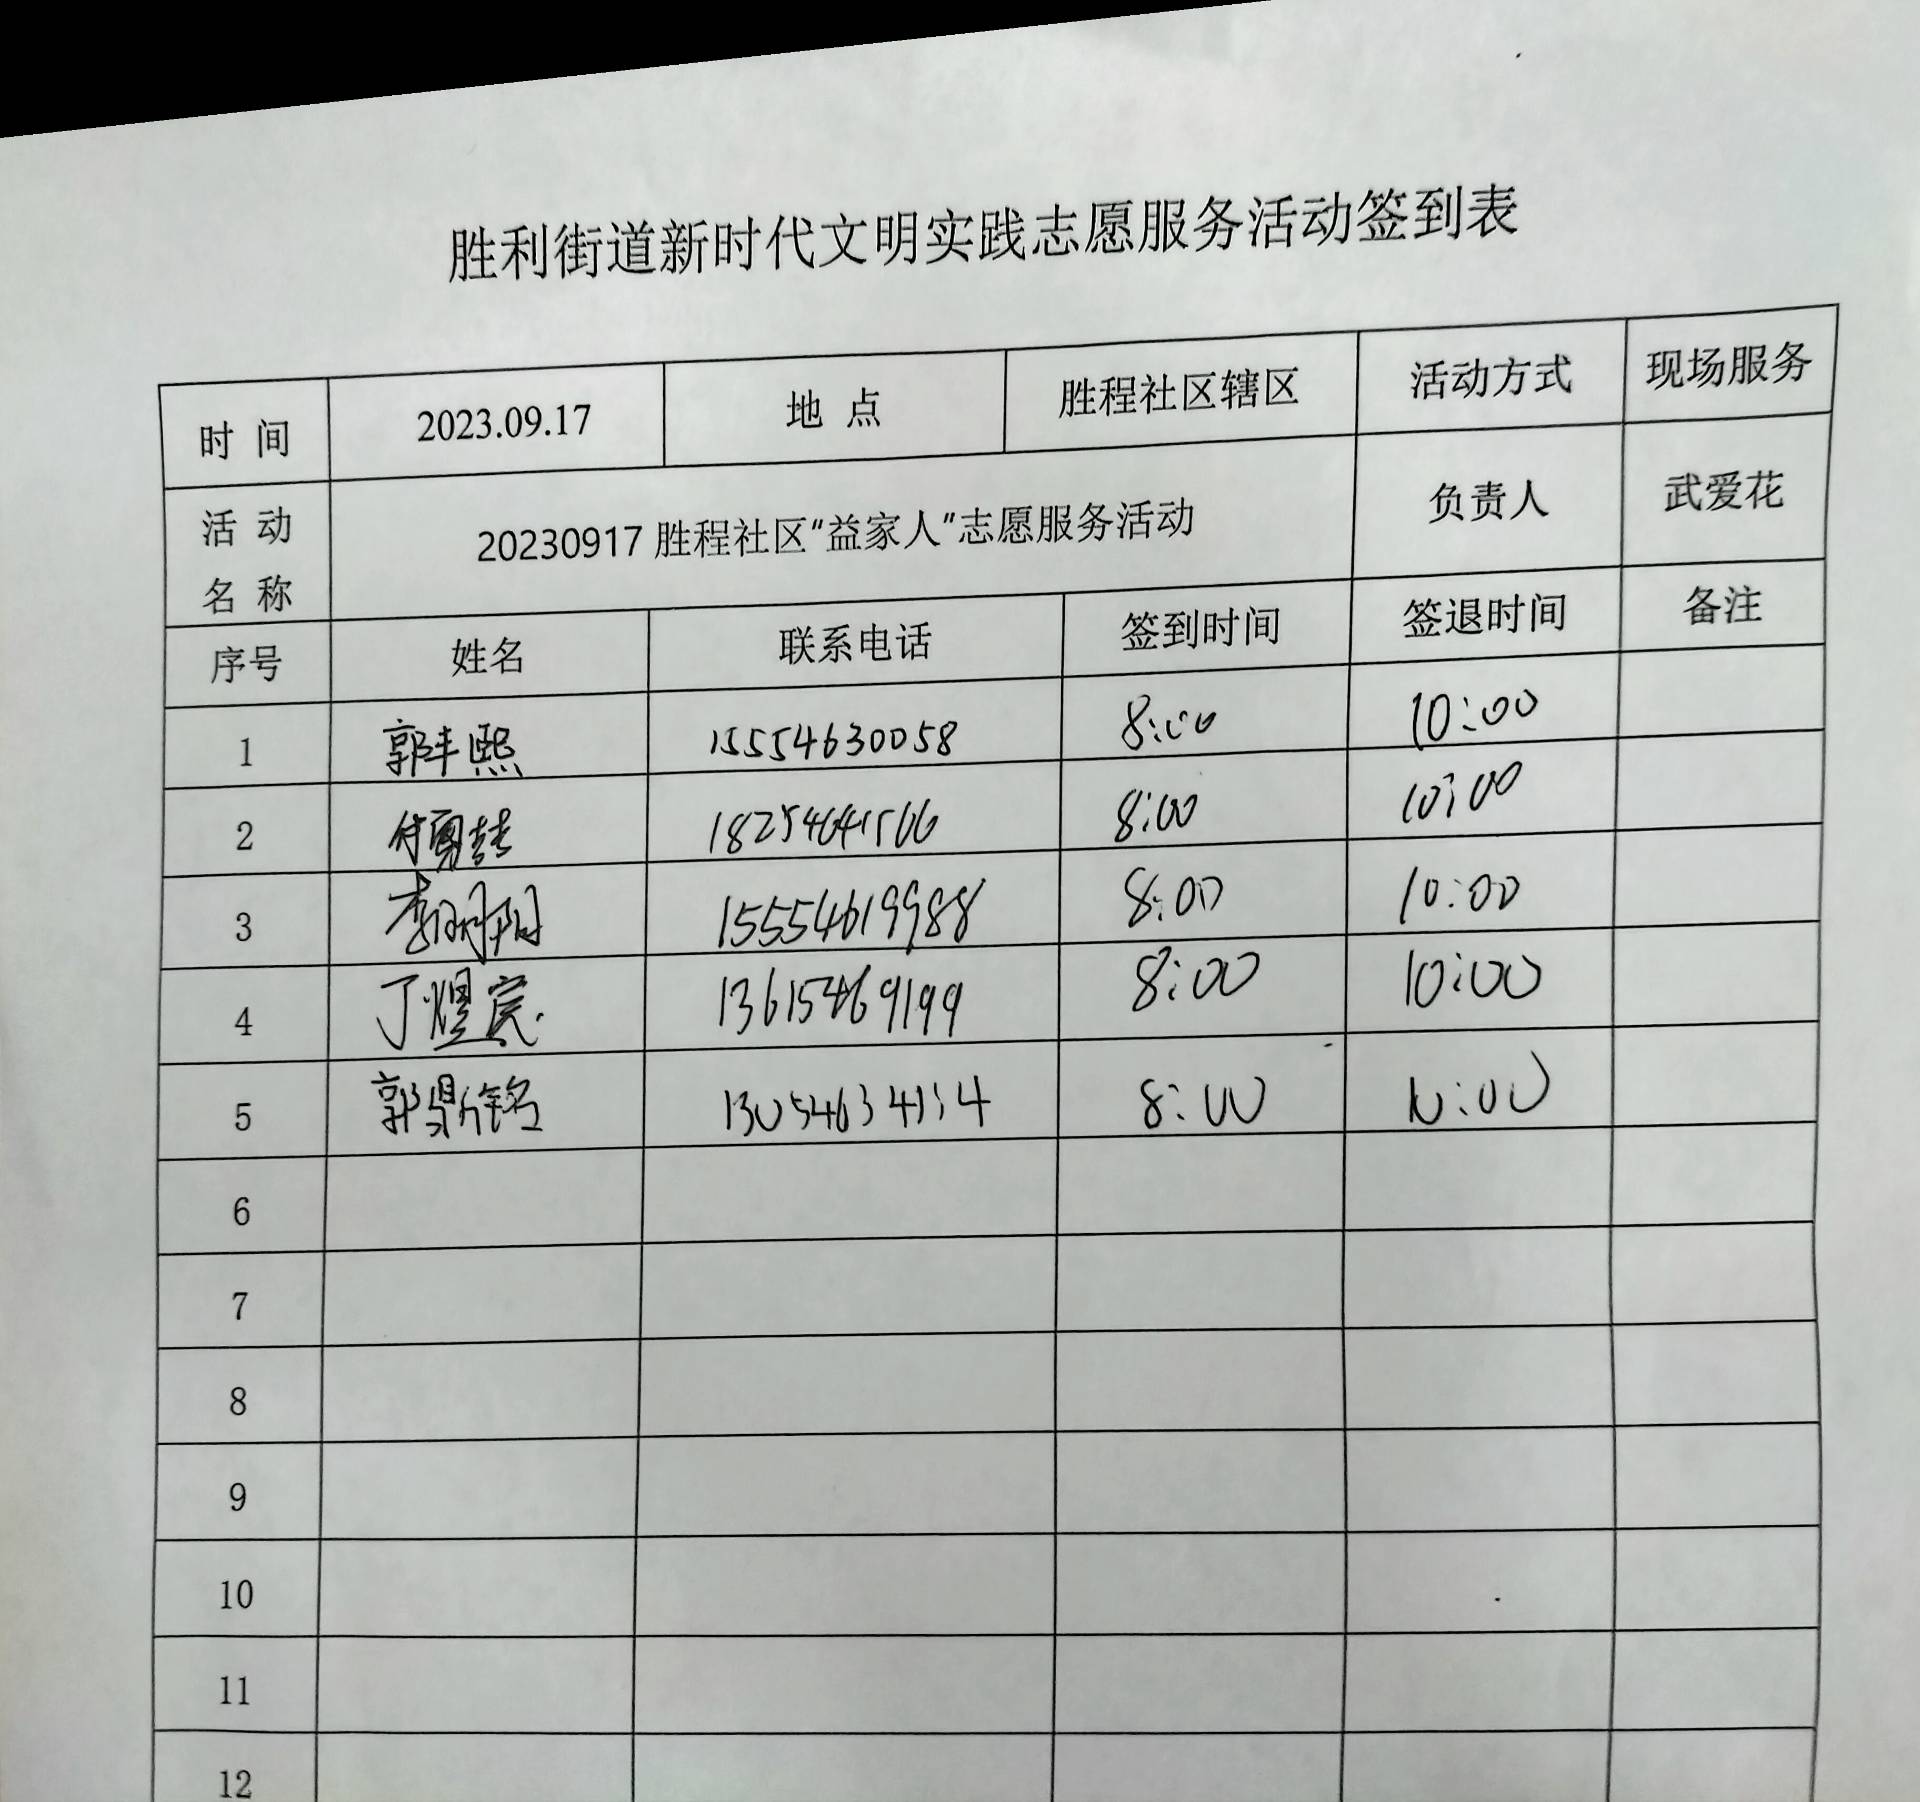 胜利街道新时代文明实践志愿服务活动签到表
时 间 2023.09.17 地 点 胜程社区辖区 活动方式 现场服务
活 动
名 称 20230917胜程社区“益家人”志愿服务活动 负责人 武爱花
序号 姓名 联系电话 签到时间 签退时间 备注
1 郭丰熙 15554630058 8:00 10:00
2 18254641566 8:00 10:00
3 李明阳 15554619988 8:00 10:00
4 丁煜宸 13615469199 8:00 10:00
5 8:00 10:00
6
7
8
9
10
11
12